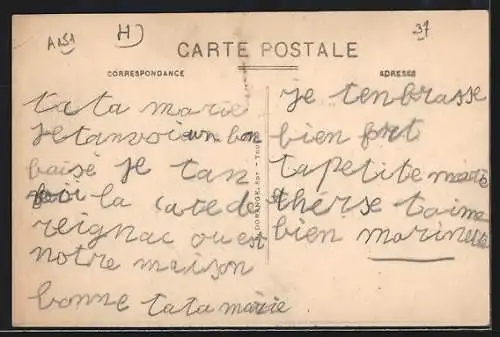 A151
H
37
CARTE POSTALE
CORRESPONDANCE
ADRESSE
tata marie
je tanvoi un bon
baisé je tan
voi la cate de
reignac ou est
notre maison
bonne tata marie
je tenbrasse
bien fort
ta petite marie
thérse taime
bien marinette